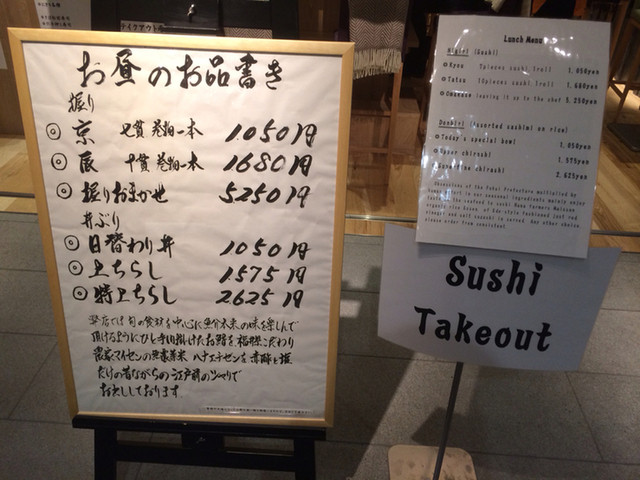 テイクアウト
お昼のお品書き
握り
◎京 七貫 巻物一本 1050円
◎辰 十貫 巻物一本 1680円
◎握りおまかせ 5250円
丼ぶり
◎日替わり丼 1050円
◎上ちらし 1575円
◎特上ちらし 2625円
当店では旬の食材を中心に魚介本来の味を楽しんで
頂けるようにひと手間掛けたお鮨を
農家マイセンの無農薬米 ハナエチゼンを赤酢と塩
だけの昔ながらの江戸前のシャリで
お出ししております
Lunch Menu
Nigiri (Sushi)
Kyou 7pieces sushi 1roll 1.050yen
Tatsu 10pieces sushi 1roll 1.680yen
Omakase leaving it up to the chef 5.250yen
Donburi (Assorted sashimi on rice)
Today's special bowl 1.050yen
chirashi 1.575yen
chirashi 2.625yen
Sushi
Takeout